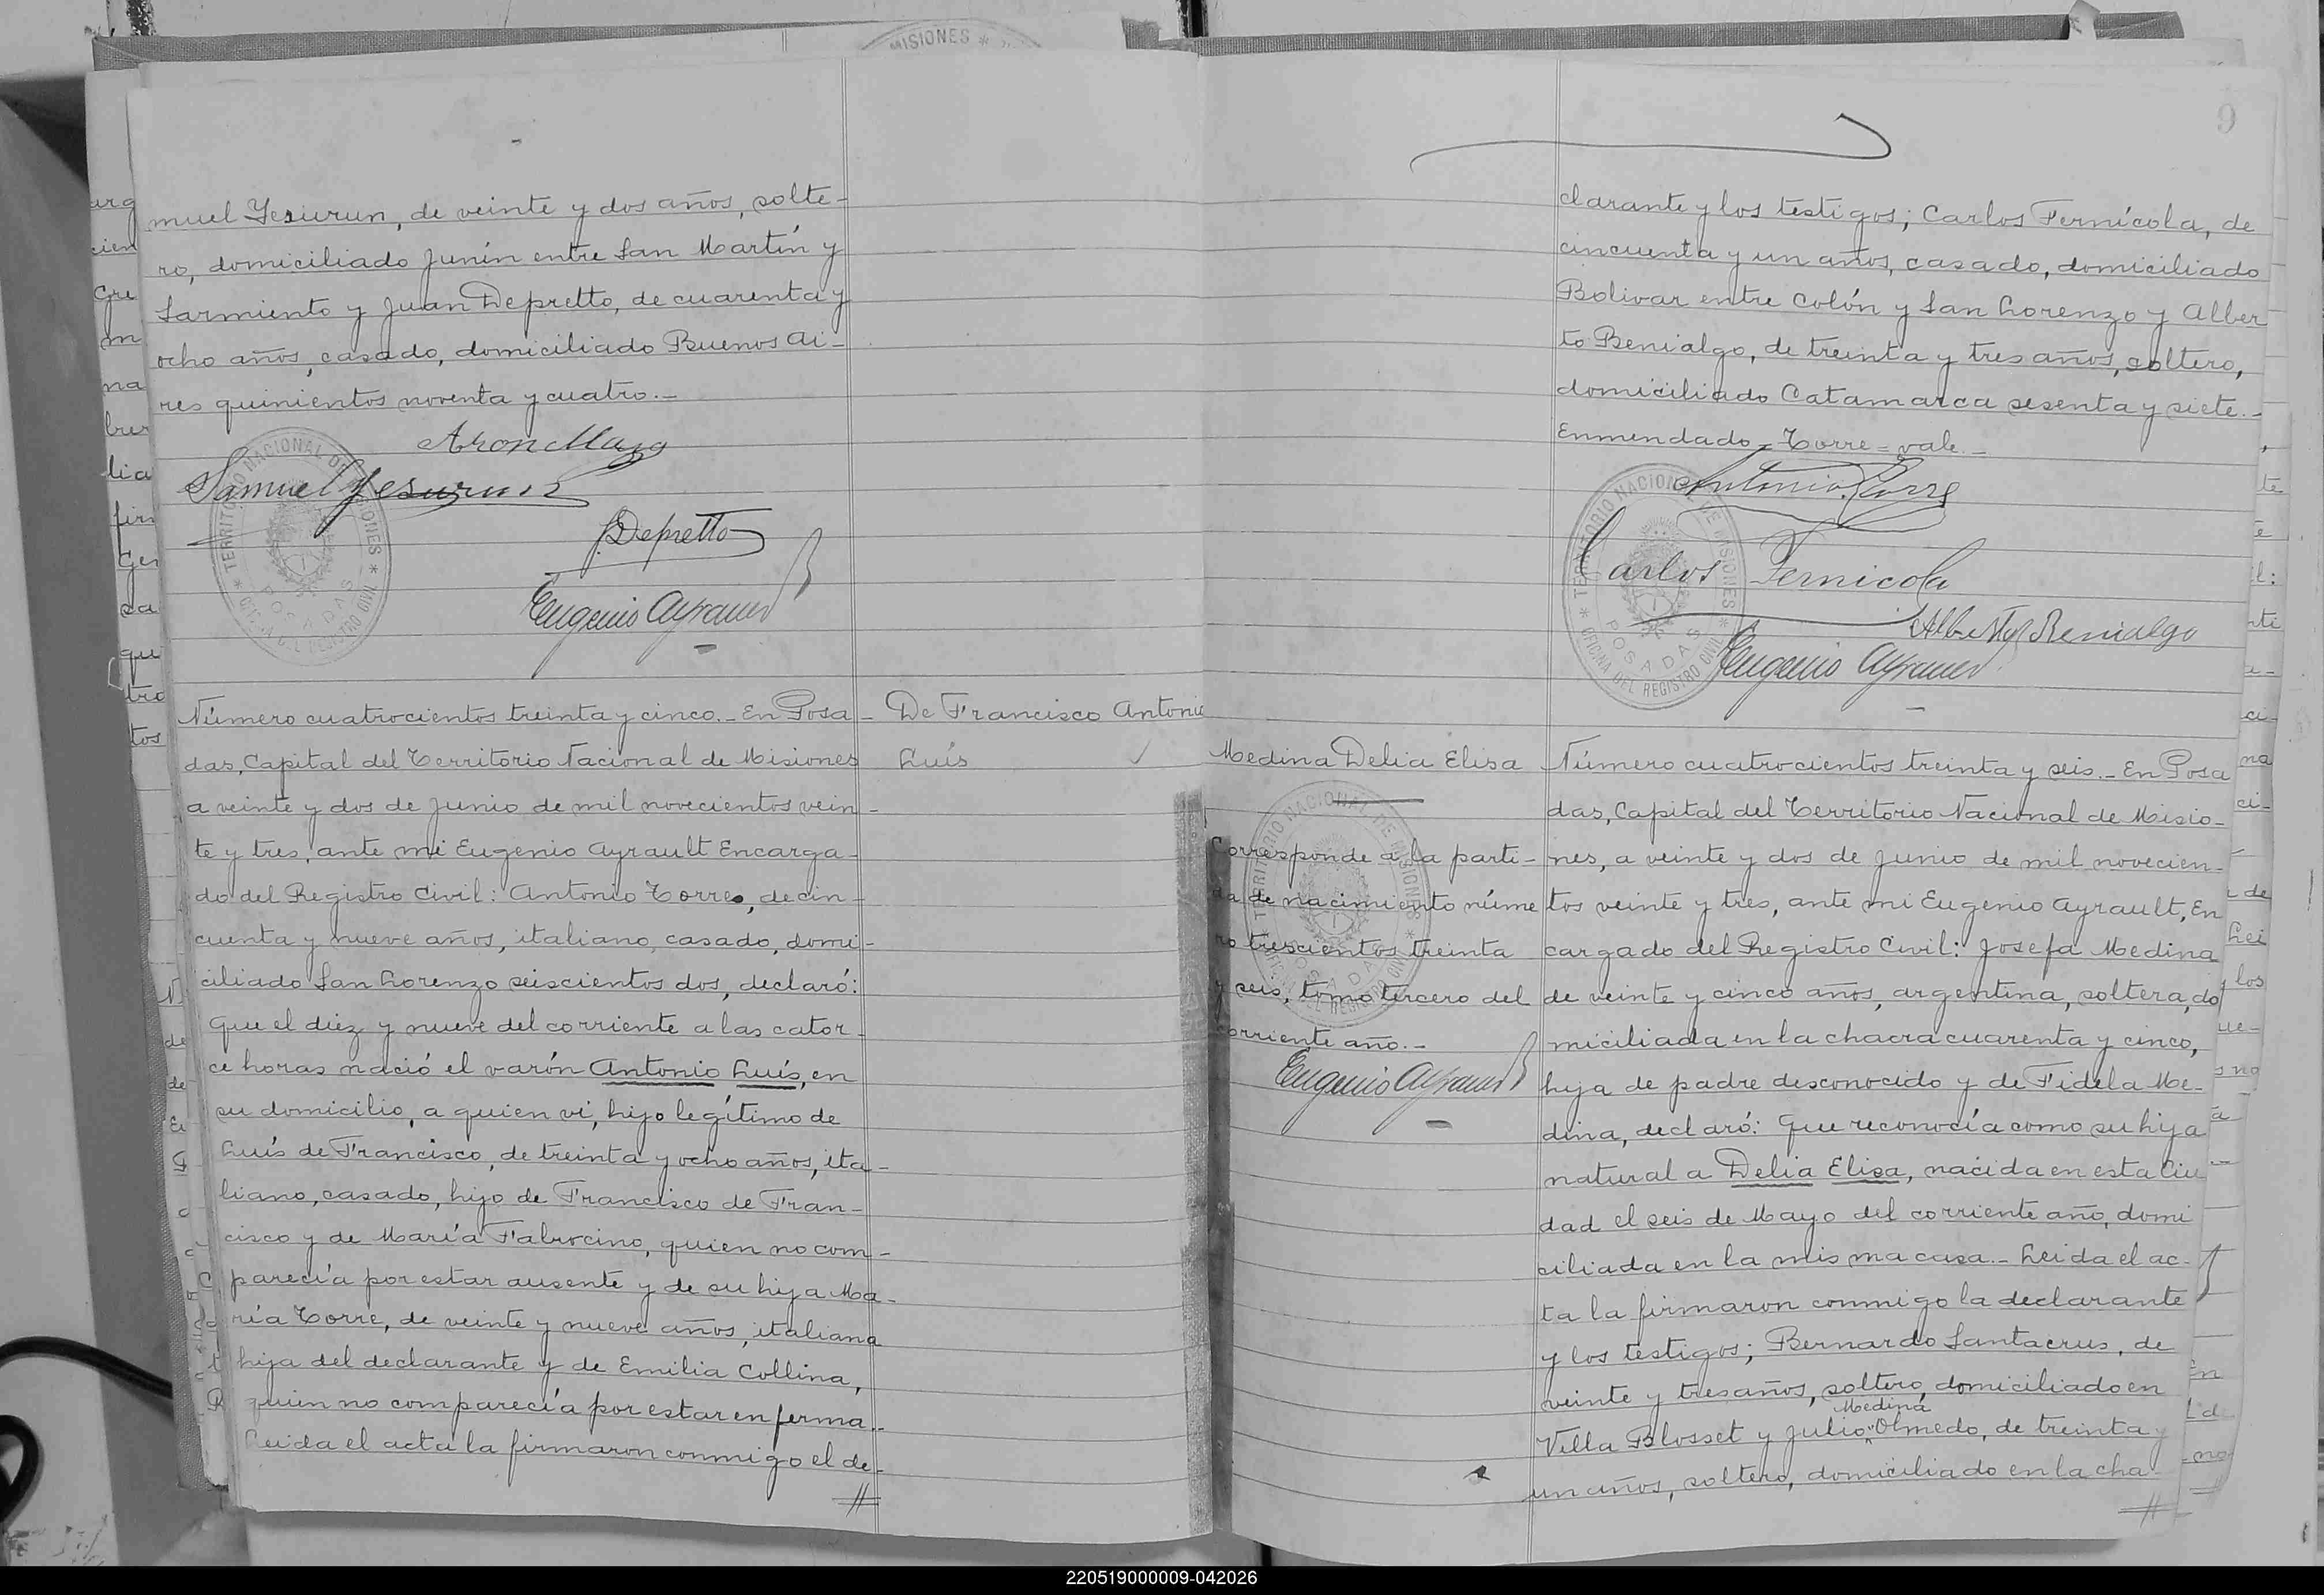 muel Yesurun, de veinte y dos años, solte-
ro, domiciliado Junín entre San Martín y
Sarmiento y Juan Depretto, de cuarenta y
ocho años, casado, domiciliado Buenos Ai-
res quinientos noventa y cuatro.-
Samuel Yesurun
J. Depretto
Eugenio Ayrault
TERRITORIO NACIONAL DE MISIONES
POSADAS
Número cuatrocientos treinta y cinco.- En Posa-
das, Capital del Territorio Nacional de Misiones
a veinte y dos de Junio de mil novecientos vein-
te y tres, ante mi Eugenio Ayrault Encarga-
do del Registro Civil: Antonio Torre, de cin-
cuenta y nueve años, italiano, casado, domi-
ciliado San Lorenzo seiscientos dos, declaró:
Que el diez y nueve del corriente a las cator-
ce horas nació el varón Antonio Luís, en
su domicilio, a quien vi, hijo legítimo de
Luís de Francisco, de treinta y ocho años, ita-
liano, casado, hijo de Francisco de Fran-
cisco y de María Fabrocino, quien no com-
parecía por estar ausente y de su hija Ma-
ría Torre, de veinte y nueve años, italiana
hija del declarante y de Emilia Collina,
quien no comparecía por estar enferma.-
Leida el acta la firmaron conmigo el de-
De Francisco Antonio
Luís
9
clarante y los testigos; Carlos Fernícola, de
cincuenta y un años, casado, domiciliado
Bolivar entre Colón y San Lorenzo y Alber
to Benialgo, de treinta y tres años, soltero,
domiciliado Catamarca sesenta y siete.-
Enmendado=Torre=vale.-
Antonio Torre
Carlos Fernicola
Alberto Benialgo
Eugenio Ayrault
TERRITORIO NACIONAL DE MISIONES
OFICINA DEL REGISTRO CIVIL
POSADAS
Medina Delia Elisa
Corresponde a la parti-
da de nacimiento núme
ro trescientos treinta
y seis, tomo tercero del
corriente año.-
Eugenio Ayrault
Número cuatrocientos treinta y seis.- En Posa
das, Capital del Territorio Nacional de Misio-
nes, a veinte y dos de Junio de mil novecien-
tos veinte y tres, ante mi Eugenio Ayrault, En
cargado del Registro Civil: Josefa Medina
de veinte y cinco años, argentina, soltera, do
miciliada en la chacra cuarenta y cinco,
hija de padre desconocido y de Fidela Me-
dina, declaró: Que reconocía como su hija
natural a Delia Elisa, nacida en esta Ciu
dad el seis de Mayo del corriente año, domi
ciliada en la misma casa.- Leida el ac-
ta la firmaron conmigo la declarante
y los testigos; Bernardo Santacrus, de
veinte y tres años, soltero, domiciliado en
Medina
Villa Blosset y Julio Olmedo, de treinta y
un años, soltero, domiciliado en la cha-
220519000009-042026